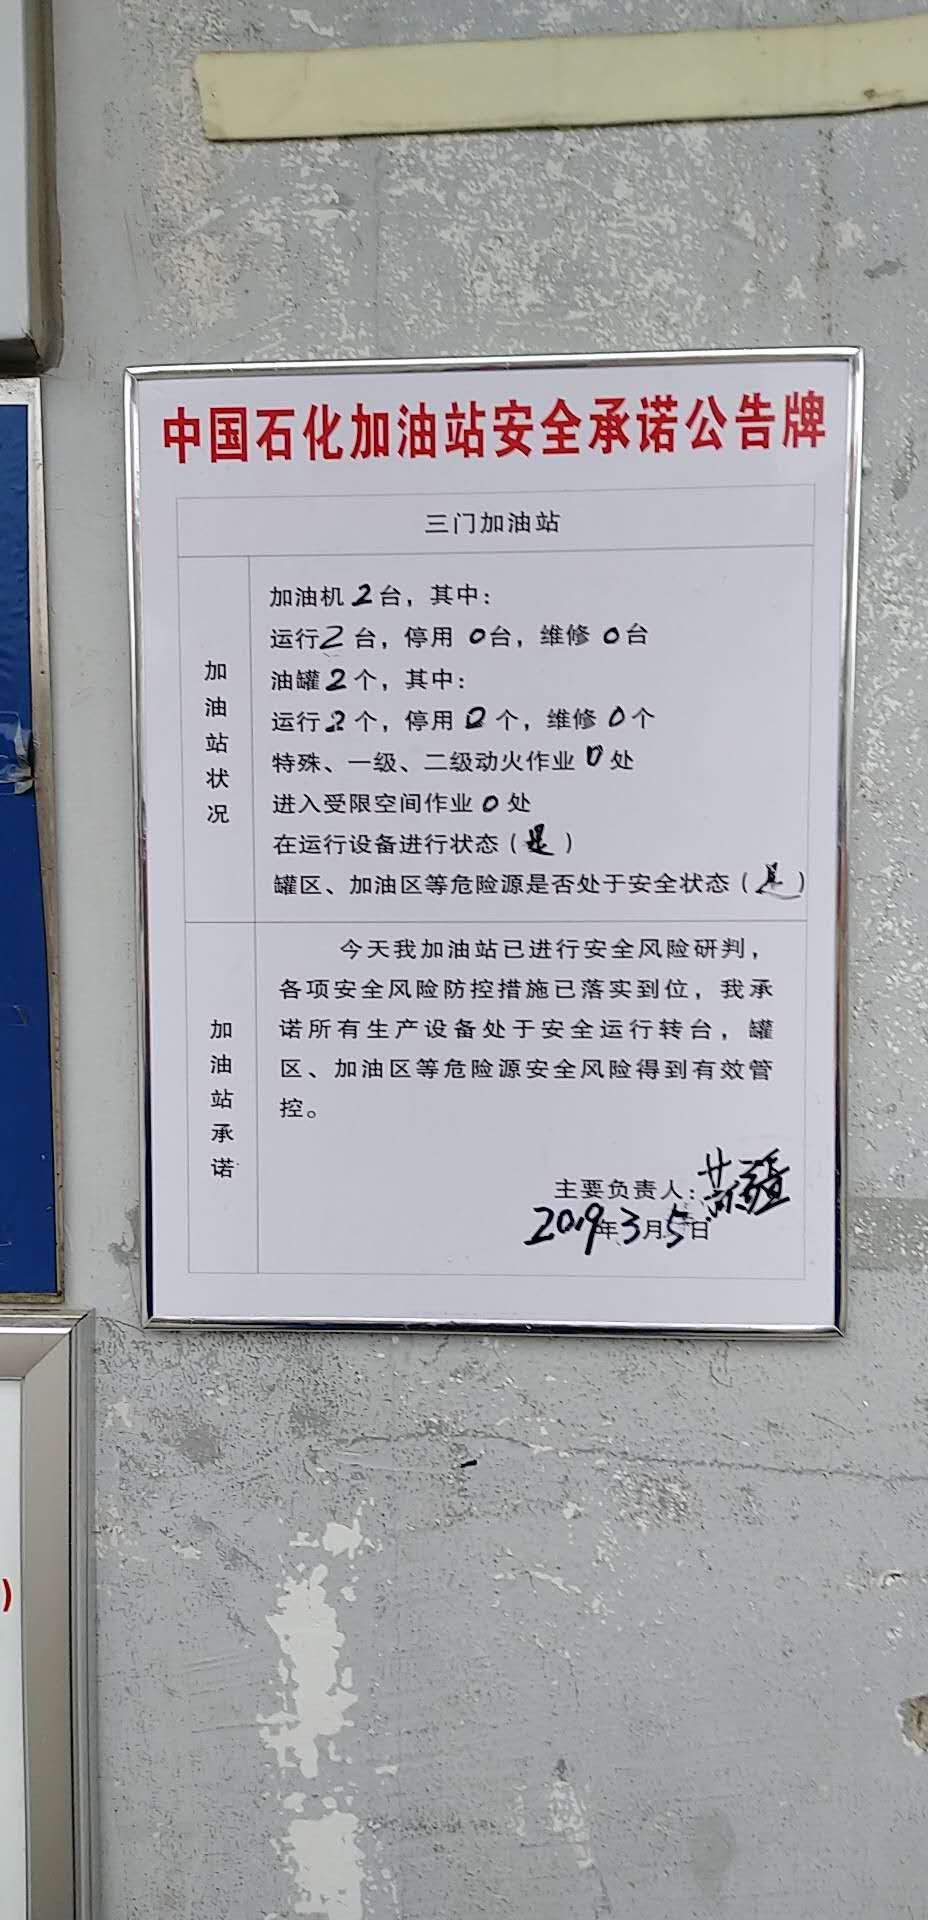 中国石化加油站安全承诺公告牌
三门加油站
加油站状况
加油机2台，其中：
运行2台，停用0台，维修0台
油罐2个，其中：
运行2个，停用0个，维修0个
特殊、一级、二级动火作业0处
进入受限空间作业0处
在运行设备进行状态（是）
罐区、加油区等危险源是否处于安全状态（是）
加油站承诺
今天我加油站已进行安全风险研判，
各项安全风险防控措施已落实到位，我承
诺所有生产设备处于安全运行转台，罐
区、加油区等危险源安全风险得到有效管
控。
主要负责人：
2019年3月5日
)